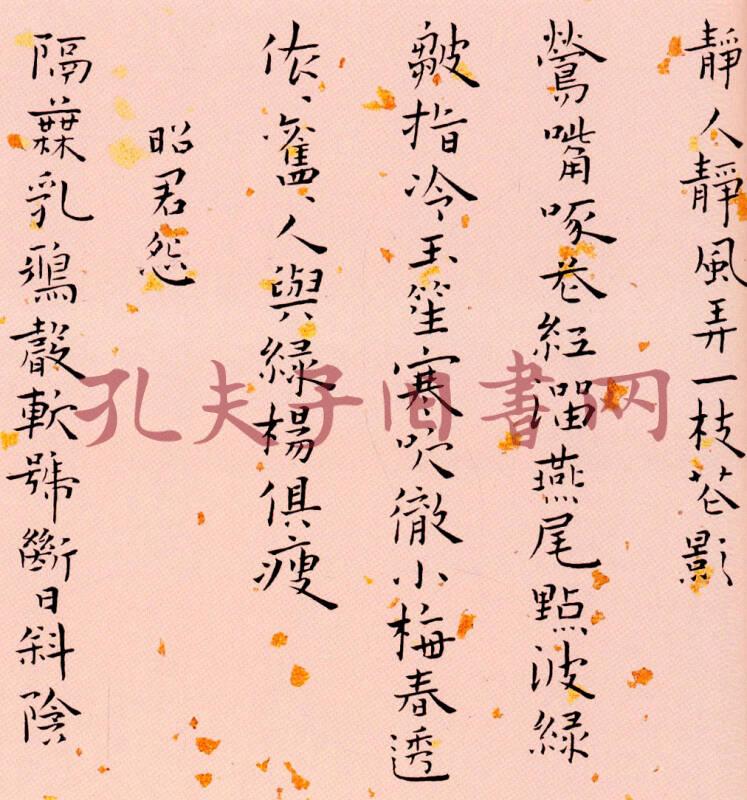 靜人靜風弄一枝花影
鶯嘴啄花紅溜燕尾點波綠
皺指冷玉笙寒吹徹小梅春透
依、舊、人與綠楊俱瘦
昭君怨
隔葉乳鴉聲軟號斷日斜陰
孔夫子旧書网